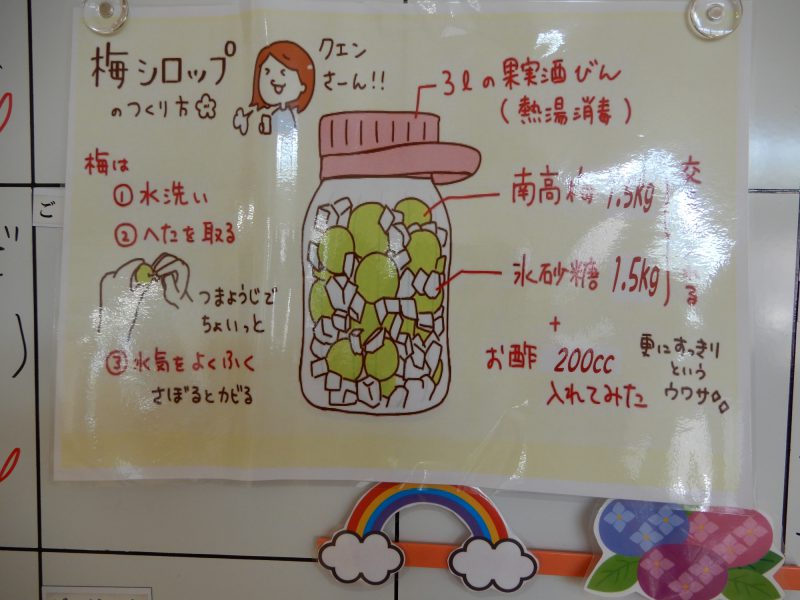 梅シロップ
のつくり方
クエン
さーん!!
3ℓの果実酒びん
(熱湯消毒)
梅は
①水洗い
②へたを取る
つまようじで
ちょいっと
③水気をよくふく
さぼるとカビる
南高梅 1.5kg
氷砂糖 1.5kg
交
る
+
お酢 200cc
入れてみた
更にすっきり
という
ウワサ
ご